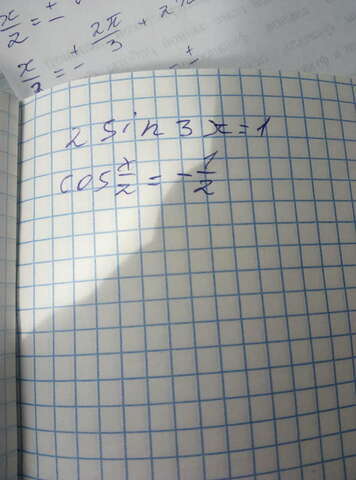 x/2 = ±
x/2 = ± 2π/3 + 2π
±
2 sin 3x = 1
cos x/2 = -1/2